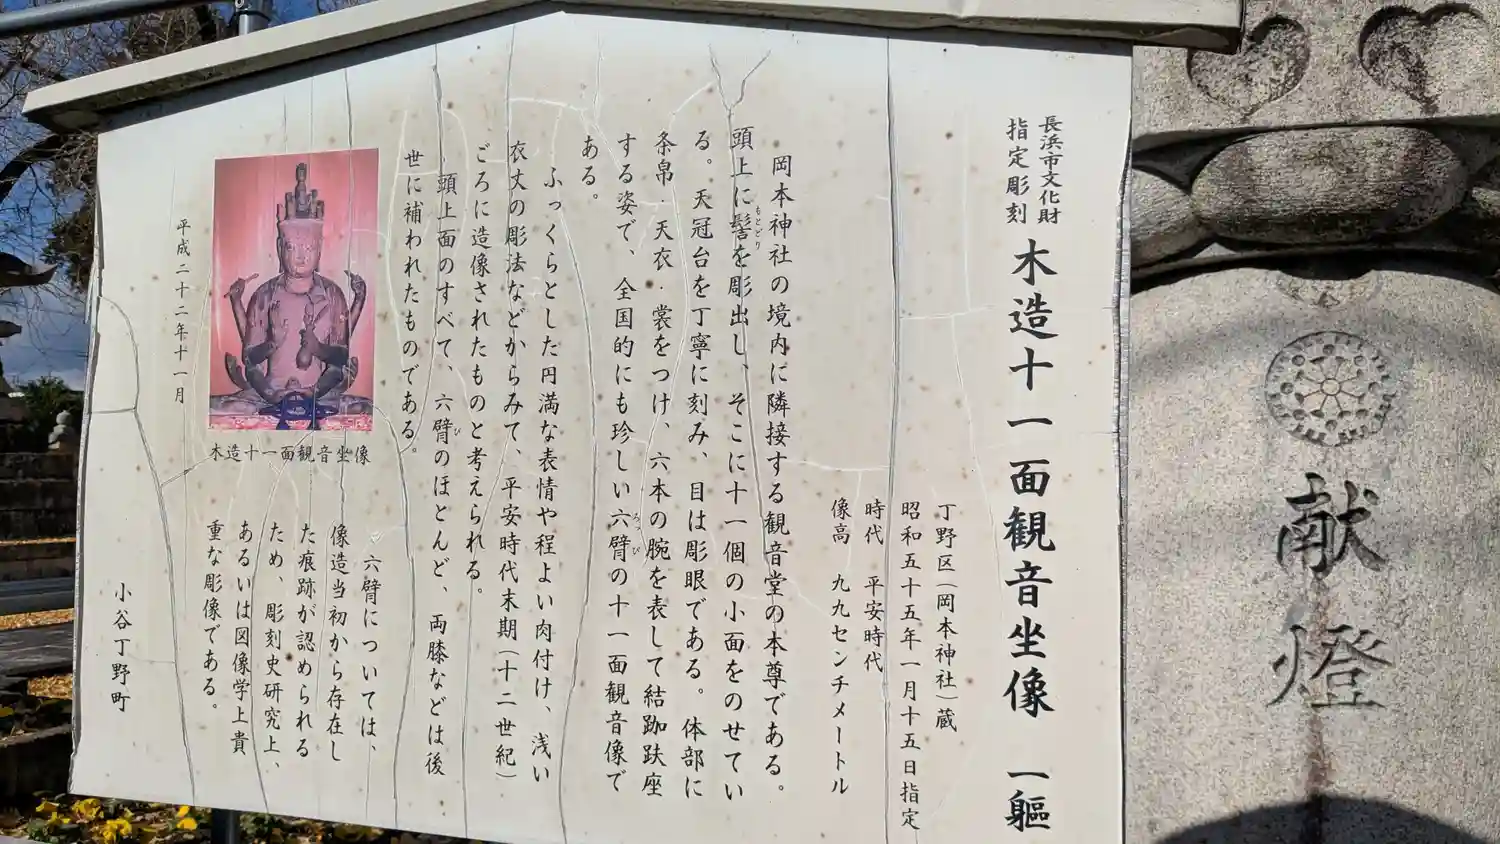 長浜市文化財
指定彫刻
木造十一面観音坐像 一軀
丁野区(岡本神社)蔵
昭和五十五年一月十五日指定
時代 平安時代
像高 九九センチメートル
岡本神社の境内に隣接する観音堂の本尊である。
頭上に髻を彫出し、そこに十一個の小面をのせてい
もとどり
る。天冠台を丁寧に刻み、目は彫眼である。体部に
条帛・天衣・裳をつけ、六本の腕を表して結跏趺座
する姿で、全国的にも珍しい六臂の十一面観音像で
ろっぴ
ある。
ふっくらとした円満な表情や程よい肉付け、浅い
衣丈の彫法などからみて、平安時代末期(十二世紀)
ごろに造像されたものと考えられる。
頭上面のすべて、六臂のほとんど、両膝などは後
び
世に補われたものである。
木造十一面観音坐像
六臂については、
像造当初から存在し
た痕跡が認められる
ため、彫刻史研究上、
あるいは図像学上貴
重な彫像である。
平成二十二年十一月
小谷丁野町
献燈